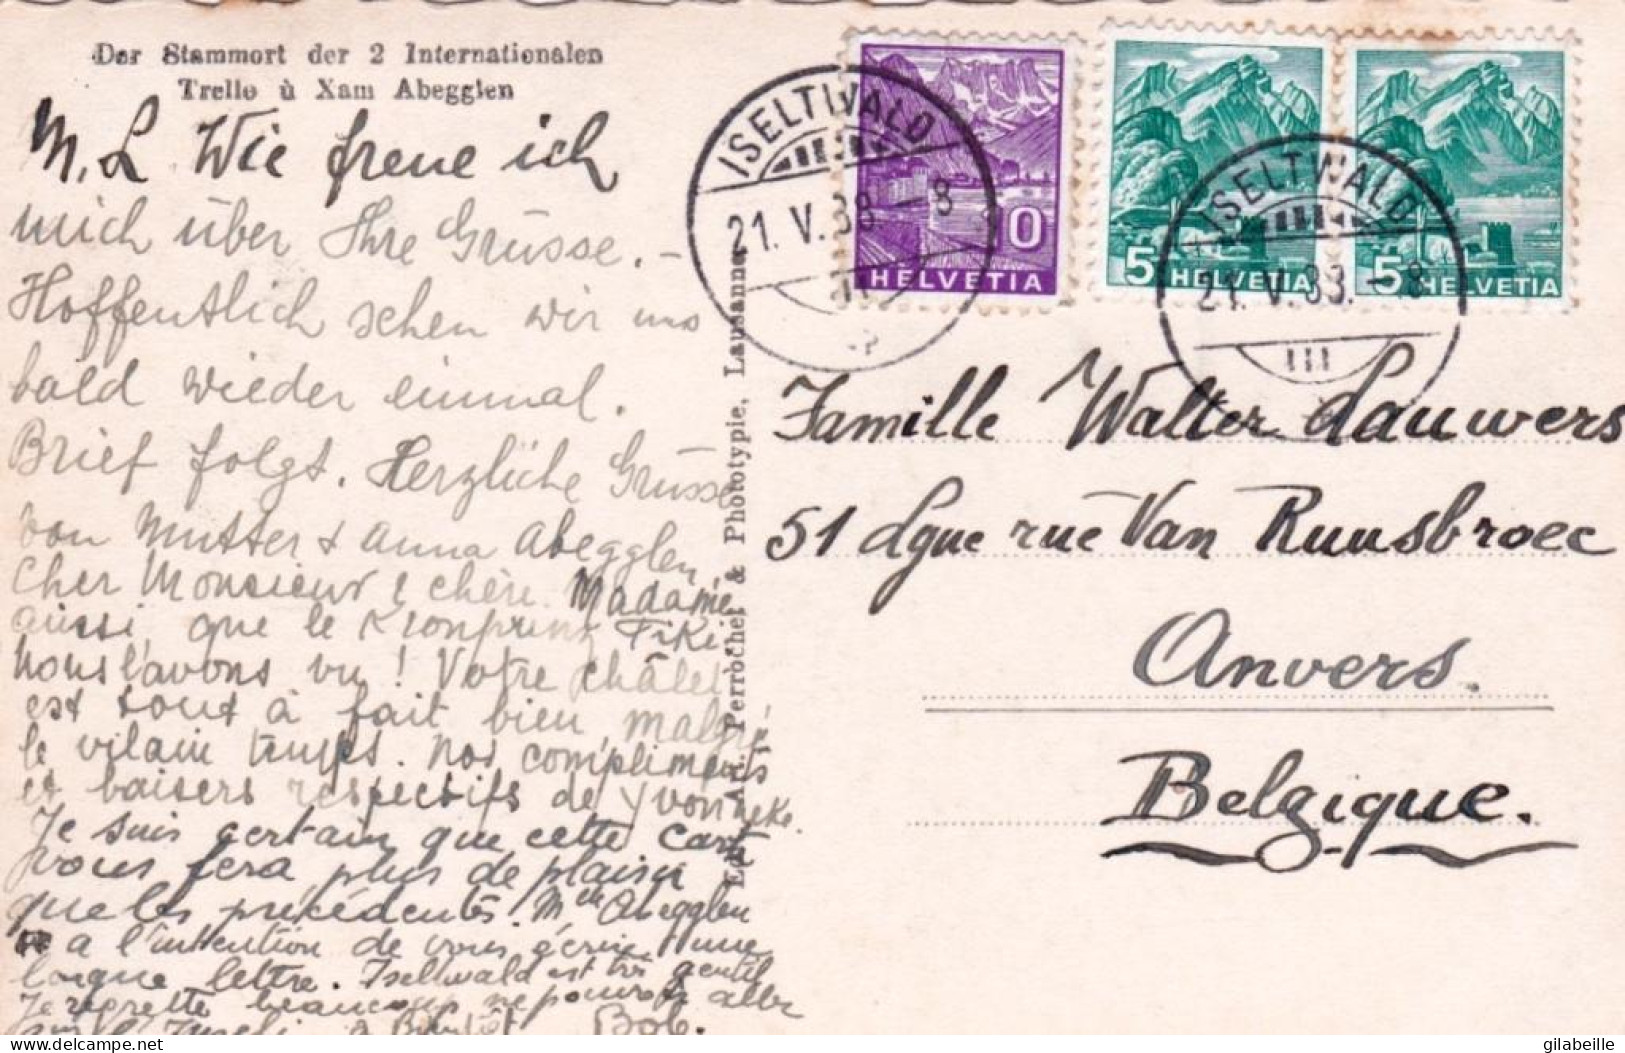 Der Stammort der 2 Internationalen
Trello ù Xam Abegglen
M. L. Wie freue ich
mich über Ihre Grüsse. –
Hoffentlich sehen wir uns
bald wieder einmal.
Brief folgt. Herzliche Grüsse
von Mutter & Anna Abegglen
Cher Monsieur & chère Madame
aussi, que le Kronprinz Fiki
Nous l'avons vu! Votre châlet
est tout à fait bien, malgré
le vilain temps. Nos compliments
et baisers respectifs de Yvonneke.
Je suis certain que cette carte
vous fera plus de plaisir
que les précédentes. Mlle Abegglen
a l'intention de vous écrire une
longue lettre. Iseltwald est très gentil
Je regrette beaucoup ne pouvoir aller
à Bientôt Bob.
Perrochet & Phototypie, Lausanne
ISELTWALD
21. V. 38 – 8
10
HELVETIA
5
HELVETIA
5
HELVETIA
ISELTWALD
21. V. 38. – 8
III
Famille Walter Lauwers
51 Lgue rue Van Ruusbroec
Anvers.
Belgique.
delcampe.net
gilabeille